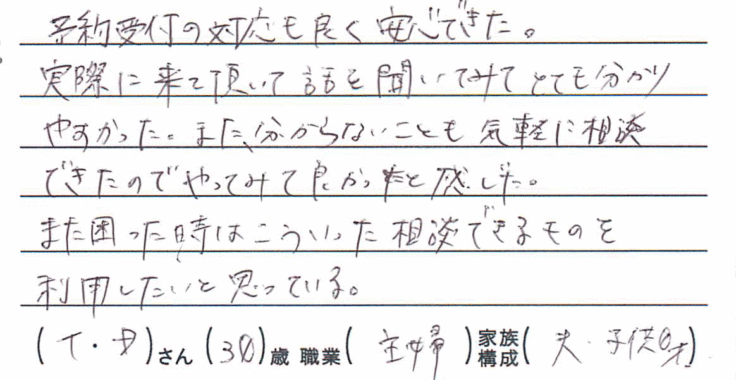 予約受付の対応も良く安心できた。
実際に来て頂いて話を聞いてみてとても分かり
やすかった。また、分からないことも気軽に相談
できたのでやってみて良かったと感じた。
また困った時はこういった相談できるものを
利用したいと思っている。
(T・M)さん (30)歳 職業(主婦)家族構成(夫・子供0才)